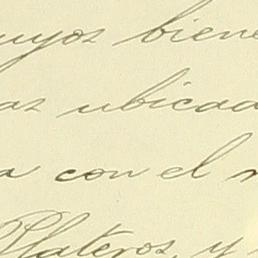 uyos biene
as ubicad
a con el
Plateros, y